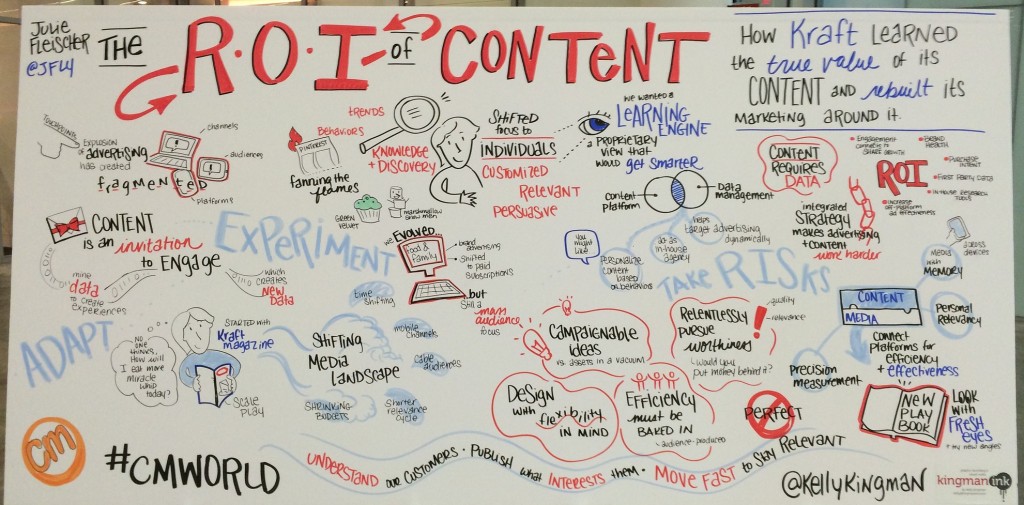 Julie
Fleischer
@JFLY
THE
R.O.I of CONTENT
How Kraft LEARNED
the true value of its
CONTENT AND rebuilt its
MARKETING AROUND it.
TOUCHPOINTS
EXPLOSION
of ADVERTISING
HAS CREATED
fragmented
channels
audiences
platforms
TRENDS
Behaviors
PINTEREST
fanning the
flames
KNOWLEDGE
+ DISCOVERY
GREEN
VELVET
marshmallow
snow men
SHIFTED
focus to
INDIVIDUALS
CUSTOMIZED
RELEVANT
PERSUASIVE
we wanted a
LEARNING
ENGINE
PROPRIETARY
VIEW that
would get smarter
Content
platform
Data
management
CONTENT
REQUIRES
DATA
integrated
STRATEGY
makes advertising
+ content
work harder
ROI
BRAND
HEALTH
PURCHASE
INTENT
FIRST PARTY DATA
IN-HOUSE RESEARCH
TOOLS
INCREASE
ad effectiveness
CONTENT
is an invitation
to ENGAGE
mine
data
to create
experiences
which
creates
NEW
DATA
EXPERIMENT
we EVOLVED...
food &
family
brand
advertising
Shifted
to paid
subscriptions
...but
still a
mass
audience
focus
You
might
like!
Personalize
content
based
on behaviors
ad as
in-house
agency
helps
target advertising
dynamically
TAKE RISKS
ADAPT
NO
ONE
thinks,
How will
I eat more
miracle
whip
today?
STARTED with
Kraft
magazine
SCALE
PLAY
time
Shifting
SHIFTING
MEDIA
LANDSCAPE
mobile
channels
Cable
audiences
SHRINKING
BUDGETS
Shorter
relevance
cycle
CAMPAIGNABLE
ideas
vs. assets in a vacuum
RELENTLESSLY
PURSUE
worthiness
would you
put money behind it?
quality
relevance
DESIGN
with flexibility
IN MIND
EFFICIENCY
must be
BAKED IN
audience-produced
PERFECT
CONTENT
MEDIA
Media
with
MEMORY
across
devices
Personal
Relevancy
CONNECT
PLATFORMS for
efficiency
+ effectiveness
PRECISION
measurement
NEW
PLAY
BOOK
LOOK
with
FRESH
eyes
+ try new angles
CM
#CMWORLD
UNDERSTAND our CUSTOMERS · PUBLISH what INTERESTS them · MOVE FAST to STAY RELEVANT
@KellyKingman
kingman ink